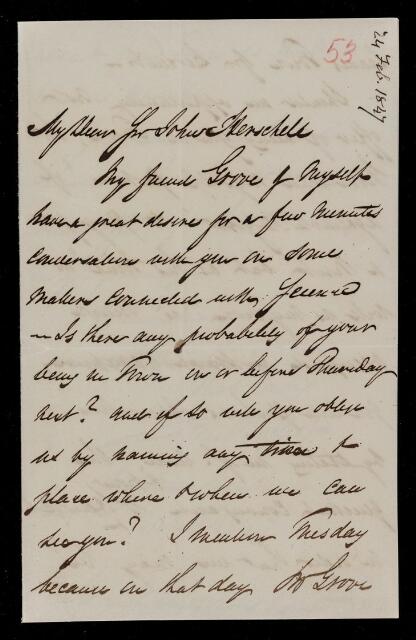 53
24 Feb. 1847
My Dear Sir John Herschell
My friend Grove & Myself
have a great desire for a few minutes
conversation with you on some
matters connected with Science
– Is there any probability of your
being in Town on or before Thursday
next? and if so will you oblige
us by naming any time &
place where & when we can
see you? I mention Tuesday
because on that day Grove